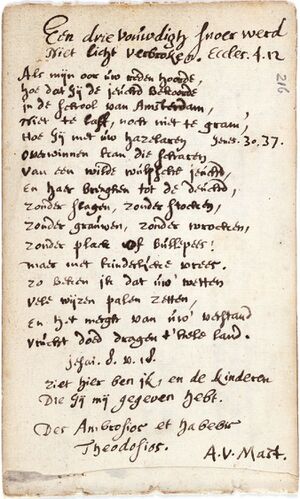 Een drievouwdigh snoer werd
Niet licht verbroken. Eccles. 4.12
216
Als mijn oor uw reden hoorde,
hoe dat Gij de jeucht bekoorde
in de school van Amsterdam,
Niet te laff, noch niet te gram,
Hoe Gij met uw hazelaren Jene. 30, 37.
Overwinnen kan die scharen
Van een wilde wulpsche jeucht,
En haer brengken tot de deucht,
zonder slagen, zonder stocken,
zonder grauwen, zonder wrocken,
zonder plack of bullepees;
maer met kinderlijcke vrees.
Zo beken ik dat uw' wetten
Vele wijzen palen zetten,
En het mergk van uw' verstand
Vrucht doed dragen 't hele land.
Jesai. 8. v. 18.
ziet hier ben ik, en de kinderen
Die Gij mij gegeven hebt.
Des Ambrosios et habebis
Theodosios.
A. V. Mart.